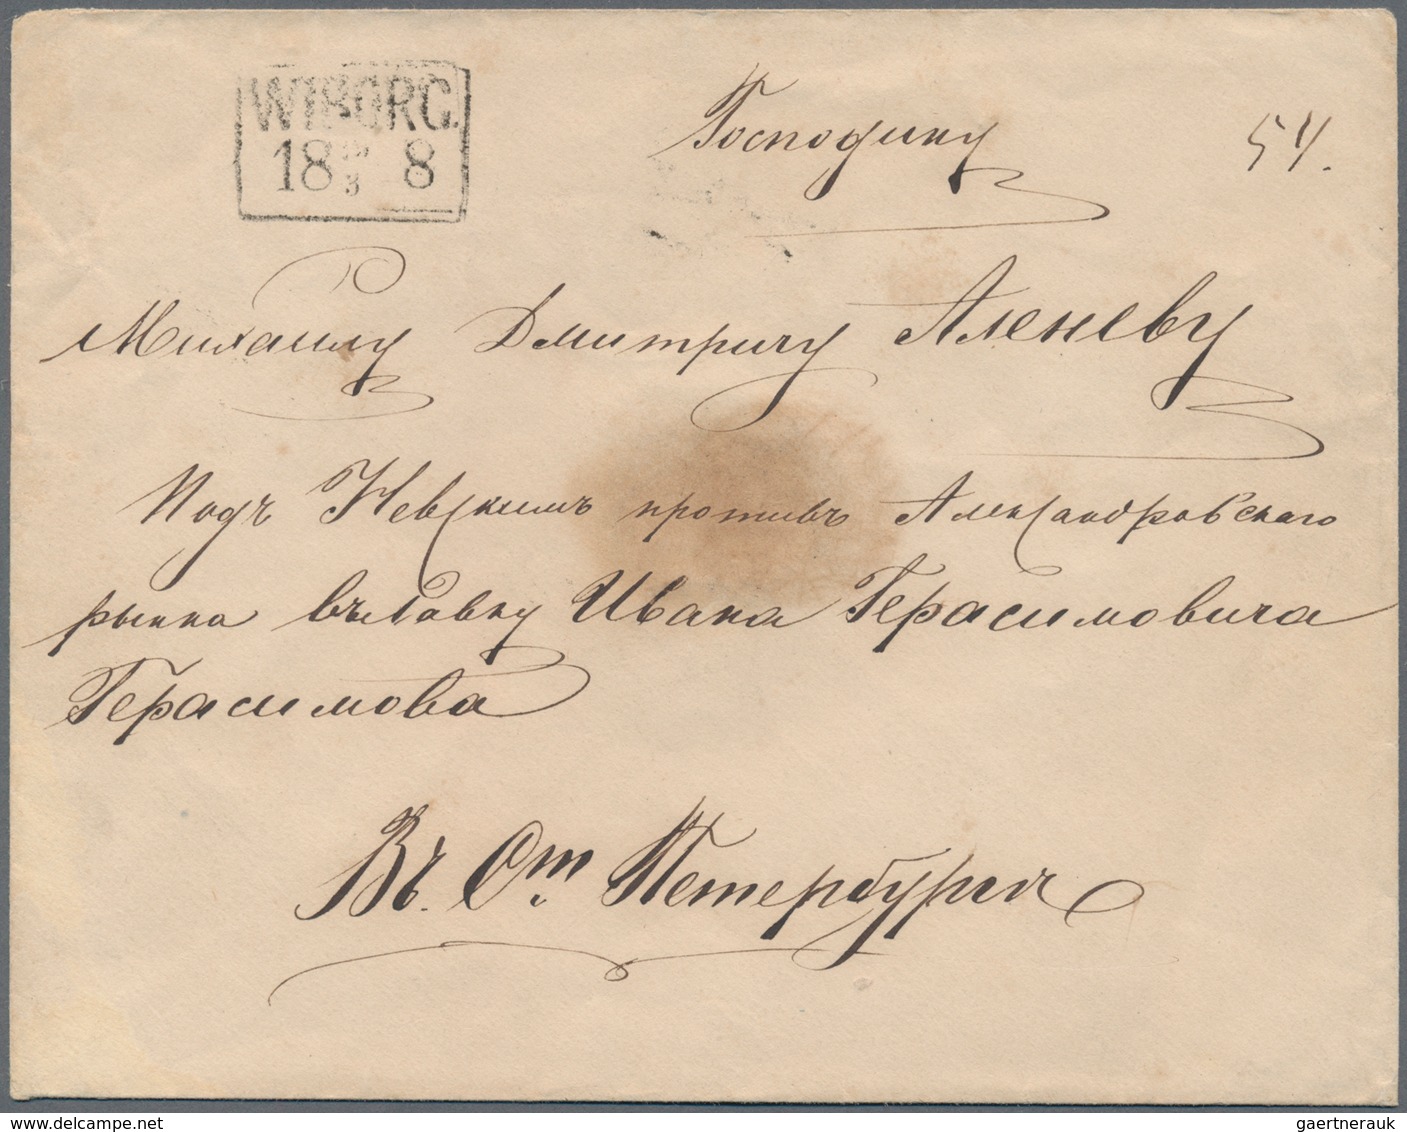 WIBORG.
18 3 8
Господину
54.
Михаилу Дмитричу Аленеву
Подъ Невскимъ противъ Александровскаго
рынка въ лавку Ивана Герасимовича
Герасимова
Въ. Ст. Петербургѣ
gaertnerauk